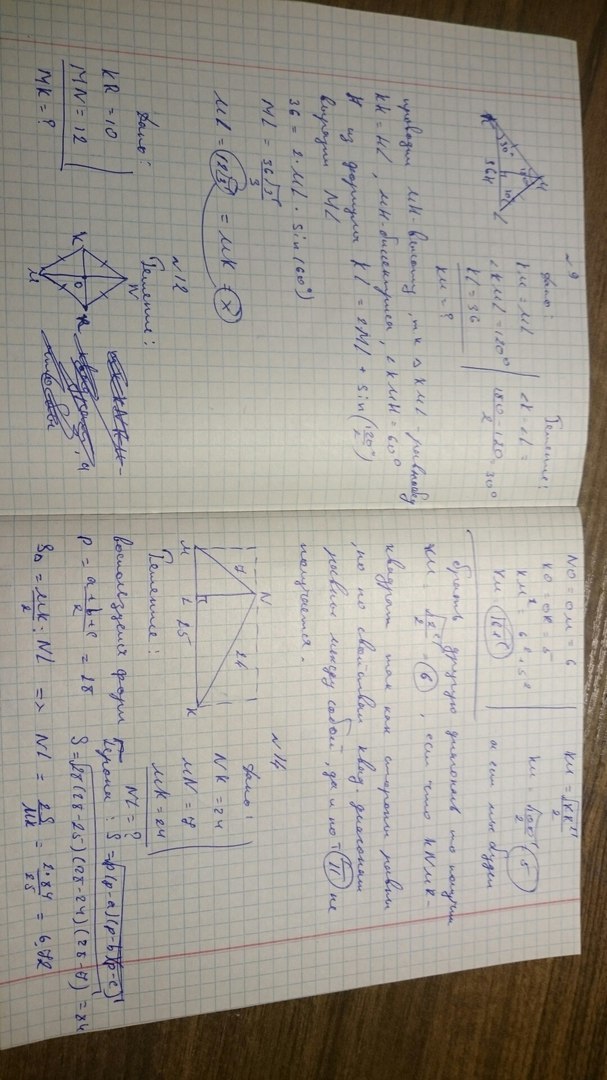 № 9
Дано:
KM = ML
∠KML = 120°
KL = 36
KM = ?
Решение:
∠K = ∠L =
180 - 120 = 30°
2
K
M
L
30°
36
проводим MH - высоту, т.к. △ KML - равнобед
KH = HL, MH - биссектриса, ∠ KMH = 60°
И из формулы KL = 2ML + sin(120°/2)
выразим ML
36 = 2 · ML · sin(60°)
ML = 36√3
3
ML = 12√3 = MK = x
№ 12
Дано:
KR = 10
MN = 12
MK = ?
Решение:
K
N
R
M
O
NO = OM = 6
KO = OR = 5
KM² = 6² + 5²
KM
KM =
KM = 5
а если мы будем
брать другую диагональ то получим
KM = 6, если что KNMR -
квадрат так как стороны равны
, но по свойствам квад диагонали
равны между собой, да и по не
получается.
№ 14
Дано:
NK = 24
MN = 7
MK = 24
NL = ?
M
N
K
L
7
24
25
Решение:
воспользуемся форм
Герона: S = √p(p-a)(p-b)(p-c)
P = a+b+c = 28
2
S = √28(28-25)(28-24)(28-7) = 84
S△ = MK · NL => NL = 2S = 2·84 = 6,72
2
MK
25